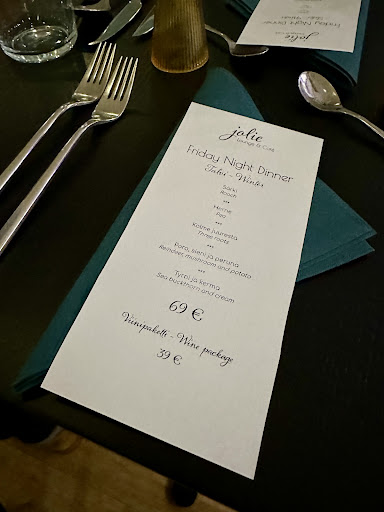 jolie
Lounge & Café
Friday Night Dinner
Talvi - Winter
Särki
Roach
***
Herne
Pea
***
Kolme juuresta
Three roots
***
Poro, sieni ja peruna
Reindeer, mushroom and potato
***
Tyrni ja kerma
Sea buckthorn and cream
69 €
Viinipaketti - Wine package
39 €
jolie
Friday Night Dinner
Talvi - Winter